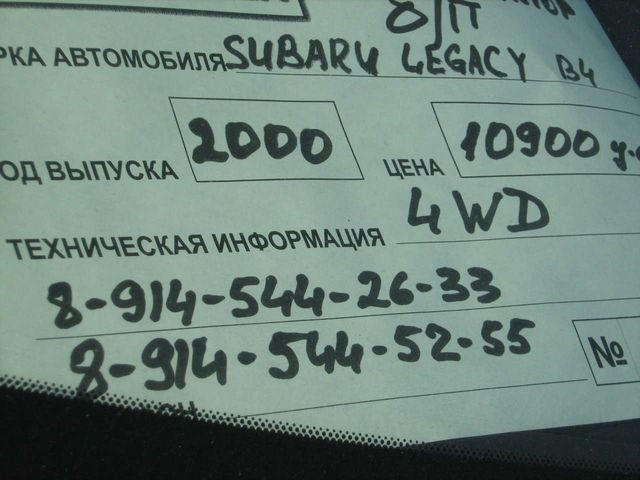 б/п
РКА АВТОМОБИЛЯ SUBARU LEGACY B4
ОД ВЫПУСКА 2000 ЦЕНА 10900 у.е
ТЕХНИЧЕСКАЯ ИНФОРМАЦИЯ 4WD
8-914-544-26-33
8-914-544-52-55
№